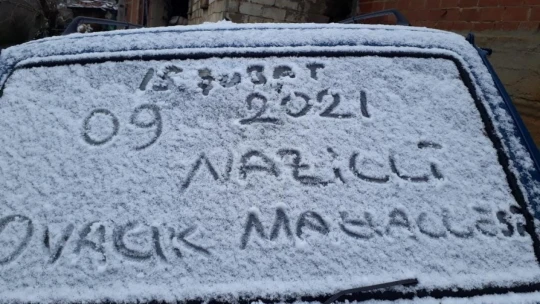 15 ŞUBAT
09 2021
NAZİLLİ
OVACIK MAHALLESİ